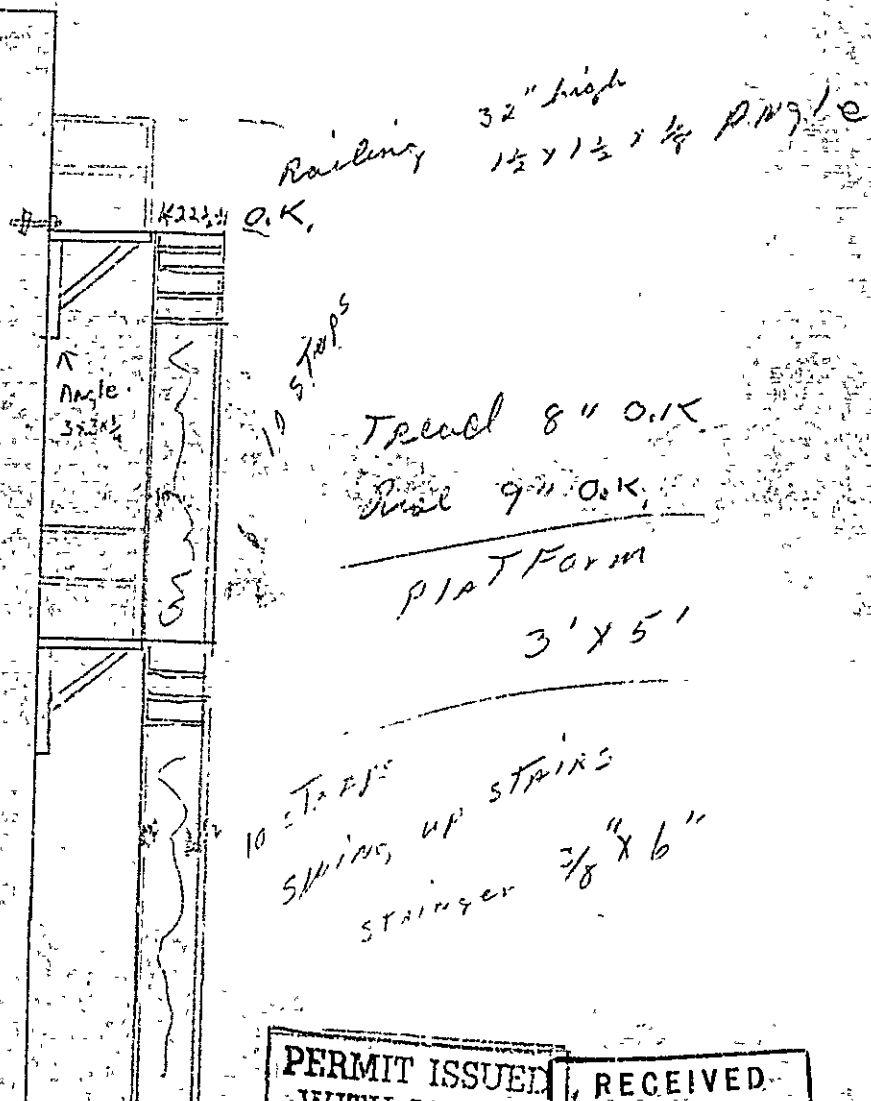 Railing 32" high
1½ x 1½ x ⅛ Angle
K22½" O.K.
Angle
3x3x¼
10 steps
Tread 8" O.K.
Rise 9" O.K.
PlATForm
3' x 5'
10 STEPS
swing up STAIRS
STringer 3/8" x 6"
PERMIT ISSUED
RECEIVED